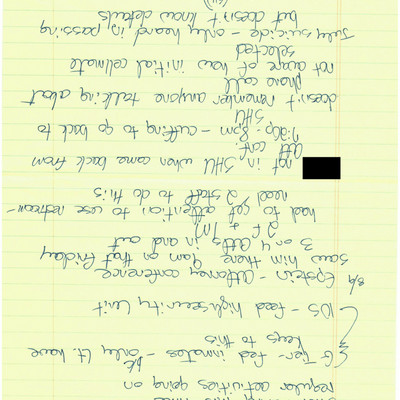 regular activities going on
G Tier - fed inmates - only Lt. have
keys to this
10S - feed high security unit
8/9 Epstein - attorney conference
saw him there 9am on that Friday
3 or 4 attys in and out
2f + 1m
had to get attention to use restroom -
need 2 staff to do this
not in SHU when came back from
att conf.
8pm - cuffing to go back to
SHU
doesn't remember anyone talking about
phone call
not aware of how initial cellmate
selected
July suicide - only heard in passing
but doesn't know details